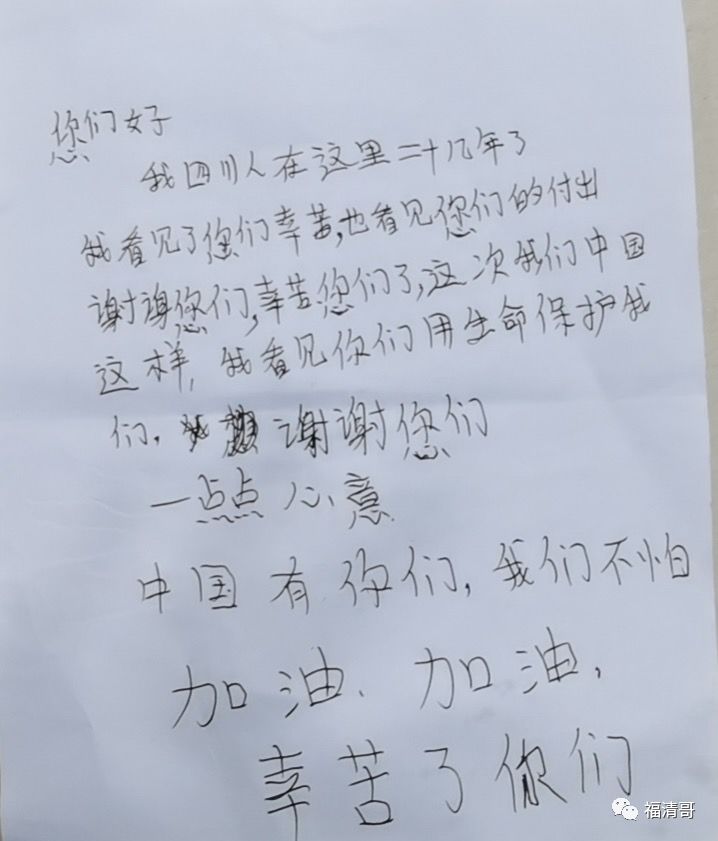 您们好
我四川人在这里二十几年了
我看见了您们幸苦,也看见您们的付出
谢谢您们,幸苦您们了,这次我们中国
这样,我看见你们用生命保护我
们,谢谢您们
一点点心意
中国有你们,我们不怕
加油、加油,
幸苦了你们
福清哥